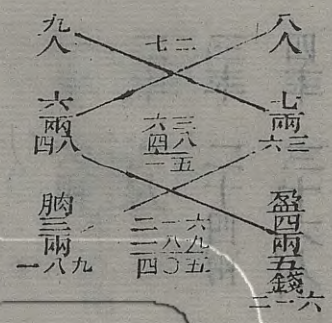 八人
七兩
六三
盈四兩五錢
二一六
七二
六三
四八
一五
二一六
一八九
四〇五
九人
六兩
四八
朒三兩
一八九